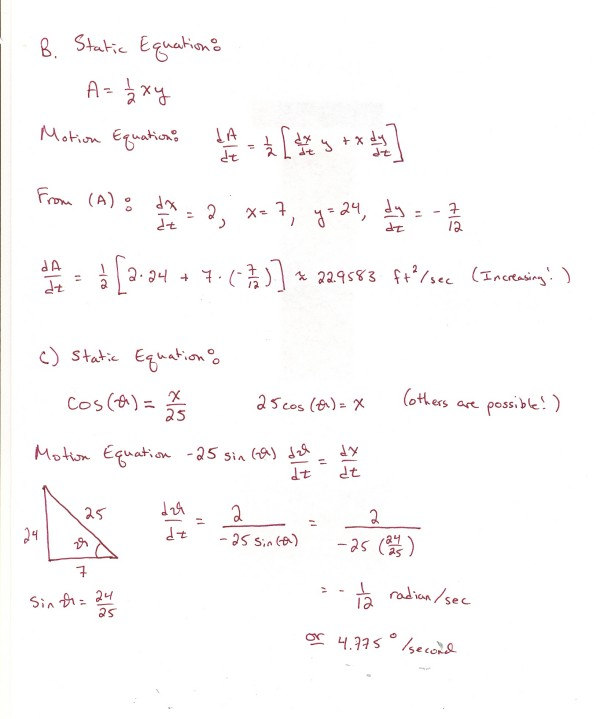 B. Static Equation:
A = 1/2 xy
Motion Equation: dA/dt = 1/2 [dx/dt y + x dy/dt]
From (A): dx/dt = 2, x = 7, y = 24, dy/dt = - 7/12
dA/dt = 1/2 [2·24 + 7·(-7/12)] ≈ 22.9583 ft²/sec (Increasing!)
C) Static Equation:
cos(ϑ) = x/25 25 cos(ϑ) = x (others are possible!)
Motion Equation -25 sin(ϑ) dϑ/dt = dx/dt
24 25 ϑ 7
dϑ/dt = 2/(-25 sin(ϑ)) = 2/(-25 (24/25))
sin ϑ = 24/25
= - 1/12 radian/sec
or 4.775°/second